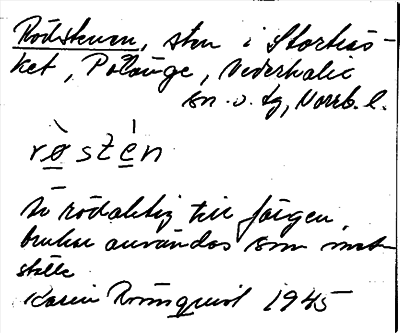 Rödstenen, sten i Storträs-
ket, Pålänge, Nederkalix
sn. o. tg, Norrb. l.
rø̀stén
är rödaktig till färgen,
brukar användas som met-
ställe
Karin Rönnquist 1945